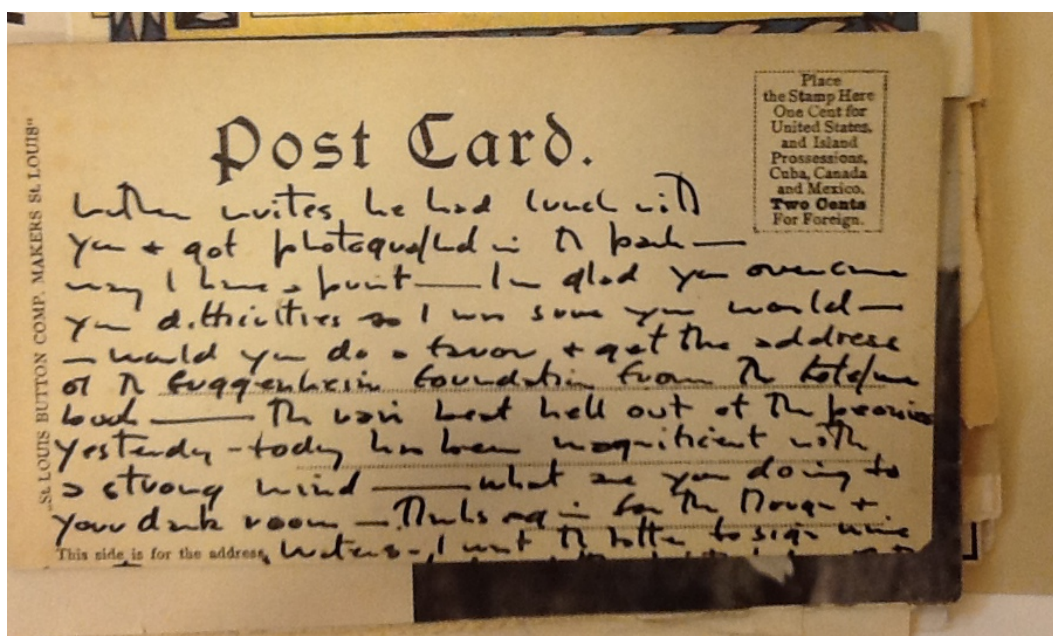 Post Card.
Place
the Stamp Here
One Cent for
United States,
and Island
Prossessions,
Cuba, Canada
and Mexico.
Two Cents
For Foreign.
"St. LOUIS BUTTON COMP. MAKERS St. LOUIS"
writes he had lunch with
you + got photographed in the park —
may I have a print — I'm glad you overcame
your difficulties as I was sure you would —
— would you do a favor + get the address
of the Guggenheim Foundation from the telephone
book — The rain beat hell out of the peonies
yesterday - today has been magnificent with
a strong wind — what are you doing to
your dark room — Thanks again for the +
This side is for the address
I want the latter to sign mine